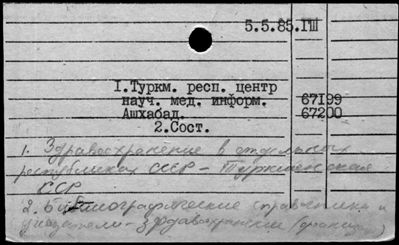 5.5.85.ГШ
1.Туркм. респ. центр
науч. мед. информ. 67199
Ашхабад. 67200
2.Сост.
1. Здравоохранение в отдельных
республиках СССР - Туркменская
ССР
2. Библиографические справочники и
указатели - здравоохранение